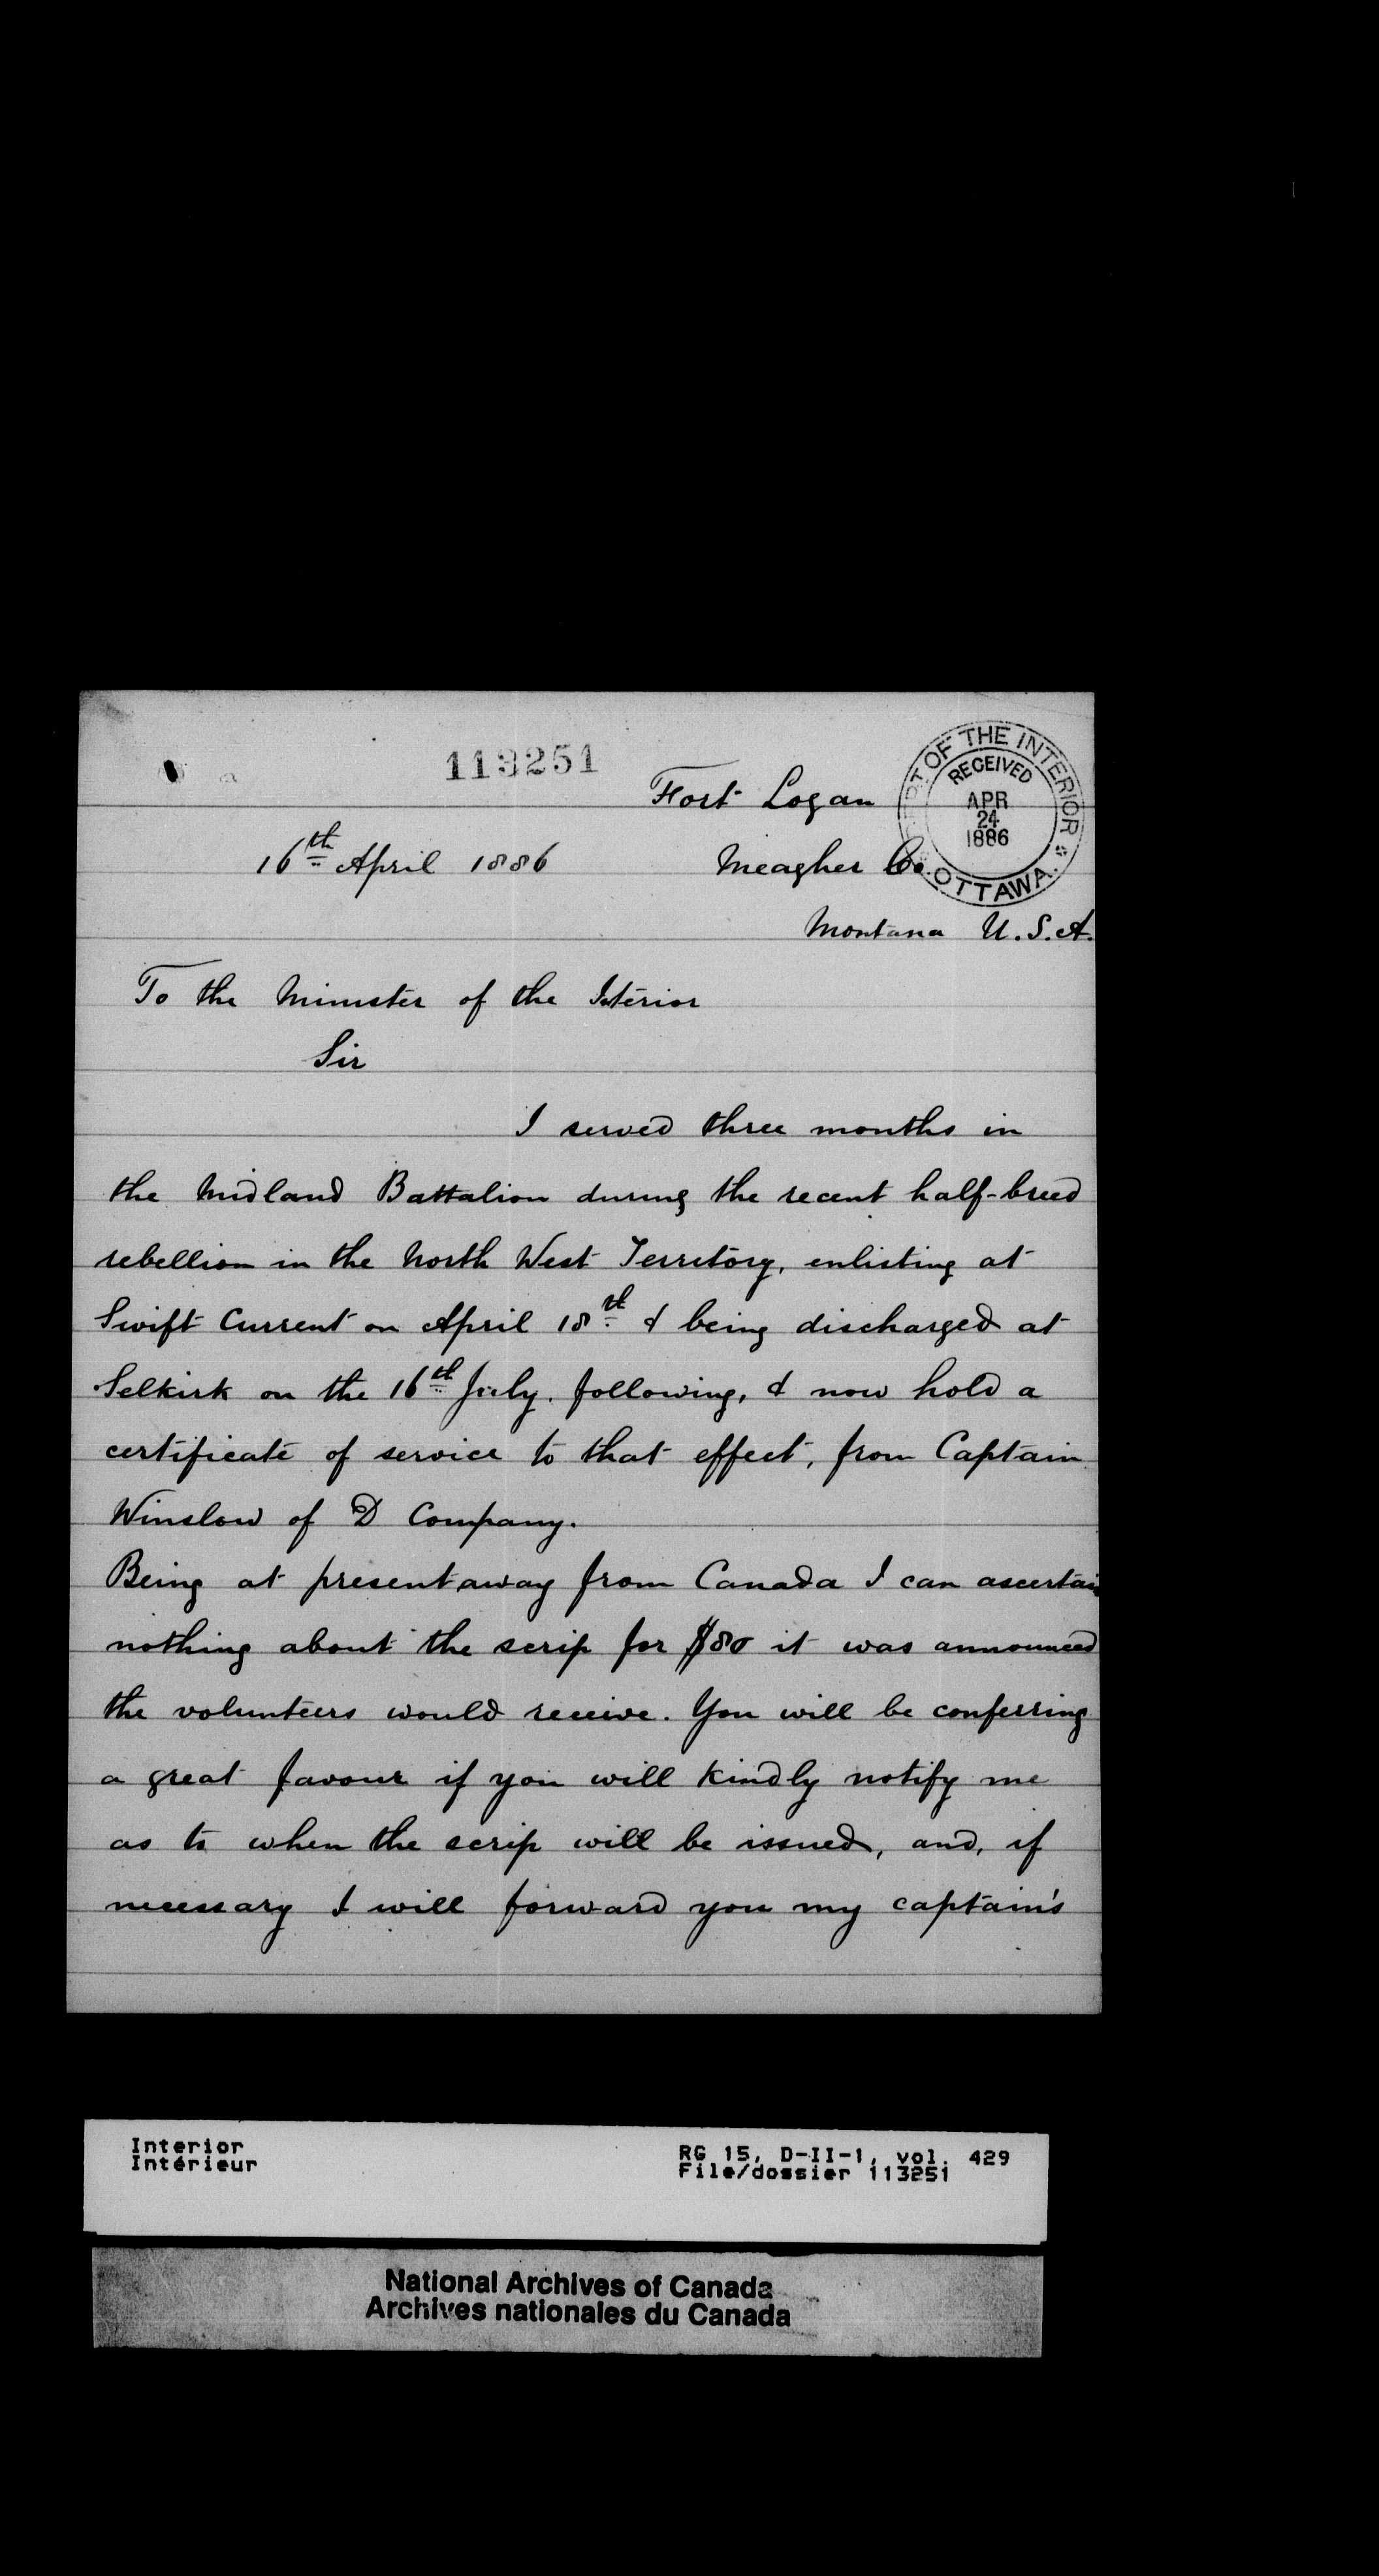 113251
DEPT OF THE INTERIOR
RECEIVED
APR
24
1886
OTTAWA.
Fort Logan
16th April 1886 Meagher Co.
Montana U.S.A.
To the Minister of the Interior
Sir
I served three months in
the Midland Battalion during the recent half-breed
rebellion in the North West Territory, enlisting at
Swift Current on April 18th & being discharged at
Selkirk on the 16th July. following, & now hold a
certificate of service to that effect, from Captain
Winslow of D Company.
Being at present away from Canada I can ascertain
nothing about the scrip for $80 it was announced
the volunteers would receive. You will be conferring
a great favour if you will kindly notify me
as to when the scrip will be issued, and, if
necessary I will forward you my captain's
Interior
Intérieur
RG 15, D-II-1, vol. 429
File/dossier 113251
National Archives of Canada
Archives nationales du Canada